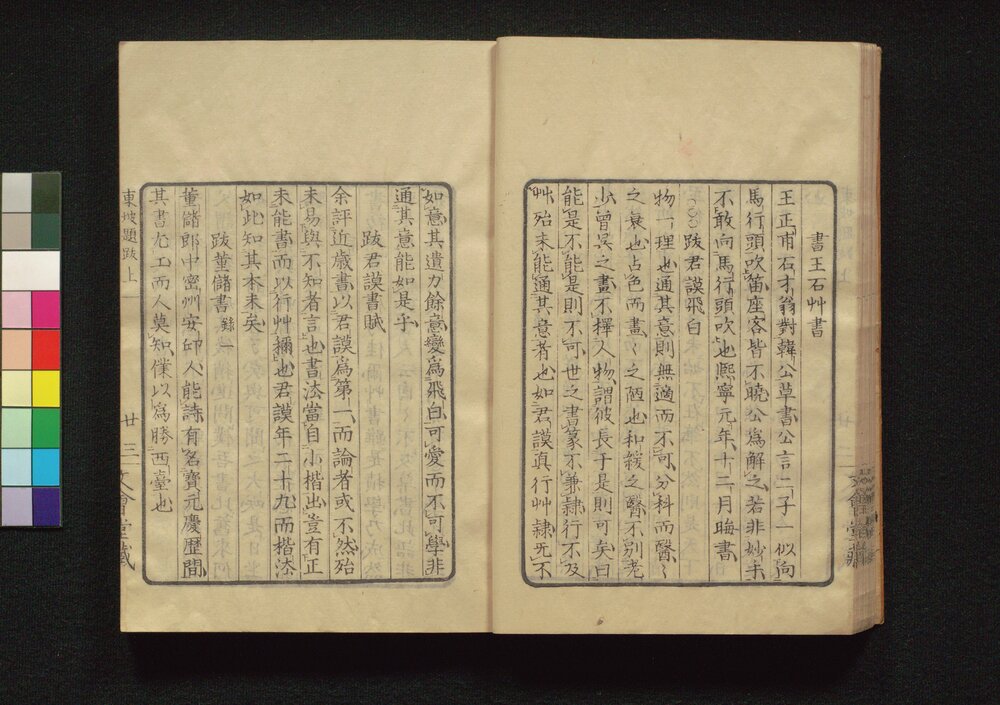 書王石艸書
王正甫石才翁對韓公草書公言二子一似向
馬行頭吹笛座客皆不曉公爲解之若非妙手
不敢向馬行頭吹也熙寧元年十二月晦書
跋君謨飛白
物一理也通其意則無適而不可分科而醫〻
之衰也占色而畫〻之陋也和緩之醫不別老
少曾吳之畫不擇人物謂彼長于是則可矣曰
能是不能是則不可世之書篆不兼隷行不及
艸殆未能通其意者也如君謨眞行艸隷旡不
如意其遺力餘意變爲飛白可愛而不可學非
通其意能如是乎
跋君謨書賦
余評近歲書以君謨爲第一而論者或不然殆
未易與不知者言也書法當自小楷出豈有正
未能書而以行艸稱也君謨年二十九而楷法
如此知其本末矣
跋董儲書 錄一
董儲郎中密州安邱人能詩有名寶元慶歷間
其書尤工而人莫知僕以爲勝西臺也
東坡題跋上
廿三
文會堂藏